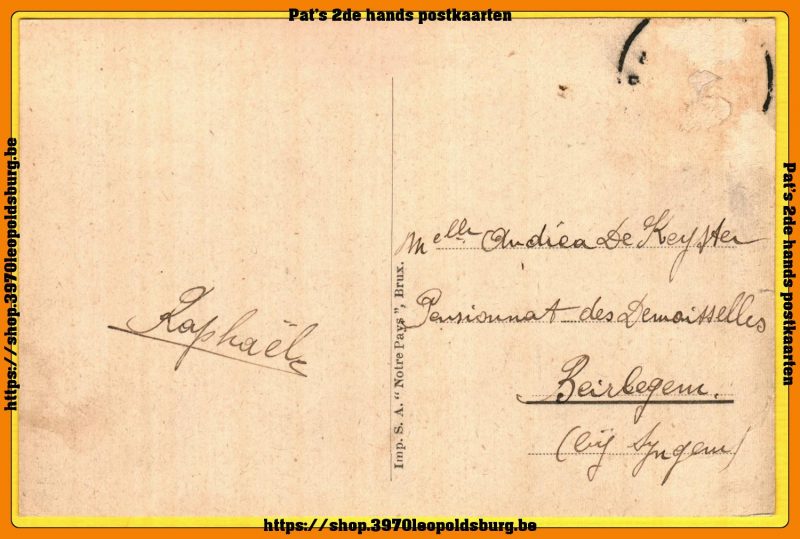 Pat's 2de hands postkaarten
https://shop.3970leopoldsburg.be
Raphaël
Imp. S. A. “ Notre Pays ”, Brux.
Melle Andréa De Keyster
Pensionnat des Demoisselles
Beirlegem.
(bij Syngem)
Pat's 2de hands postkaarten
https://shop.3970leopoldsburg.be